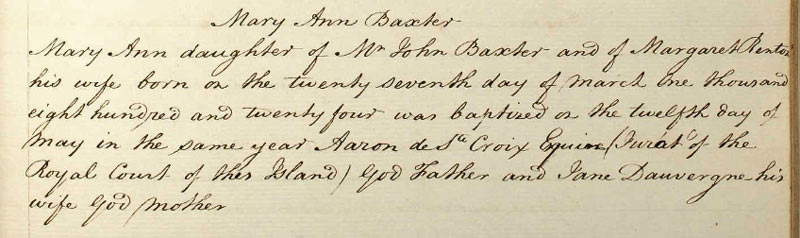 Mary Ann Baxter
Mary Ann daughter of Mr John Baxter and of Margaret Renton
his wife born on the twenty seventh day of March one thousand
eight hundred and twenty four was baptized on the twelfth day of
May in the same year Aaron de Ste Croix Equire (Jurat of the
Royal Court of this Island) God Father and Jane Dauvergne his
wife God Mother